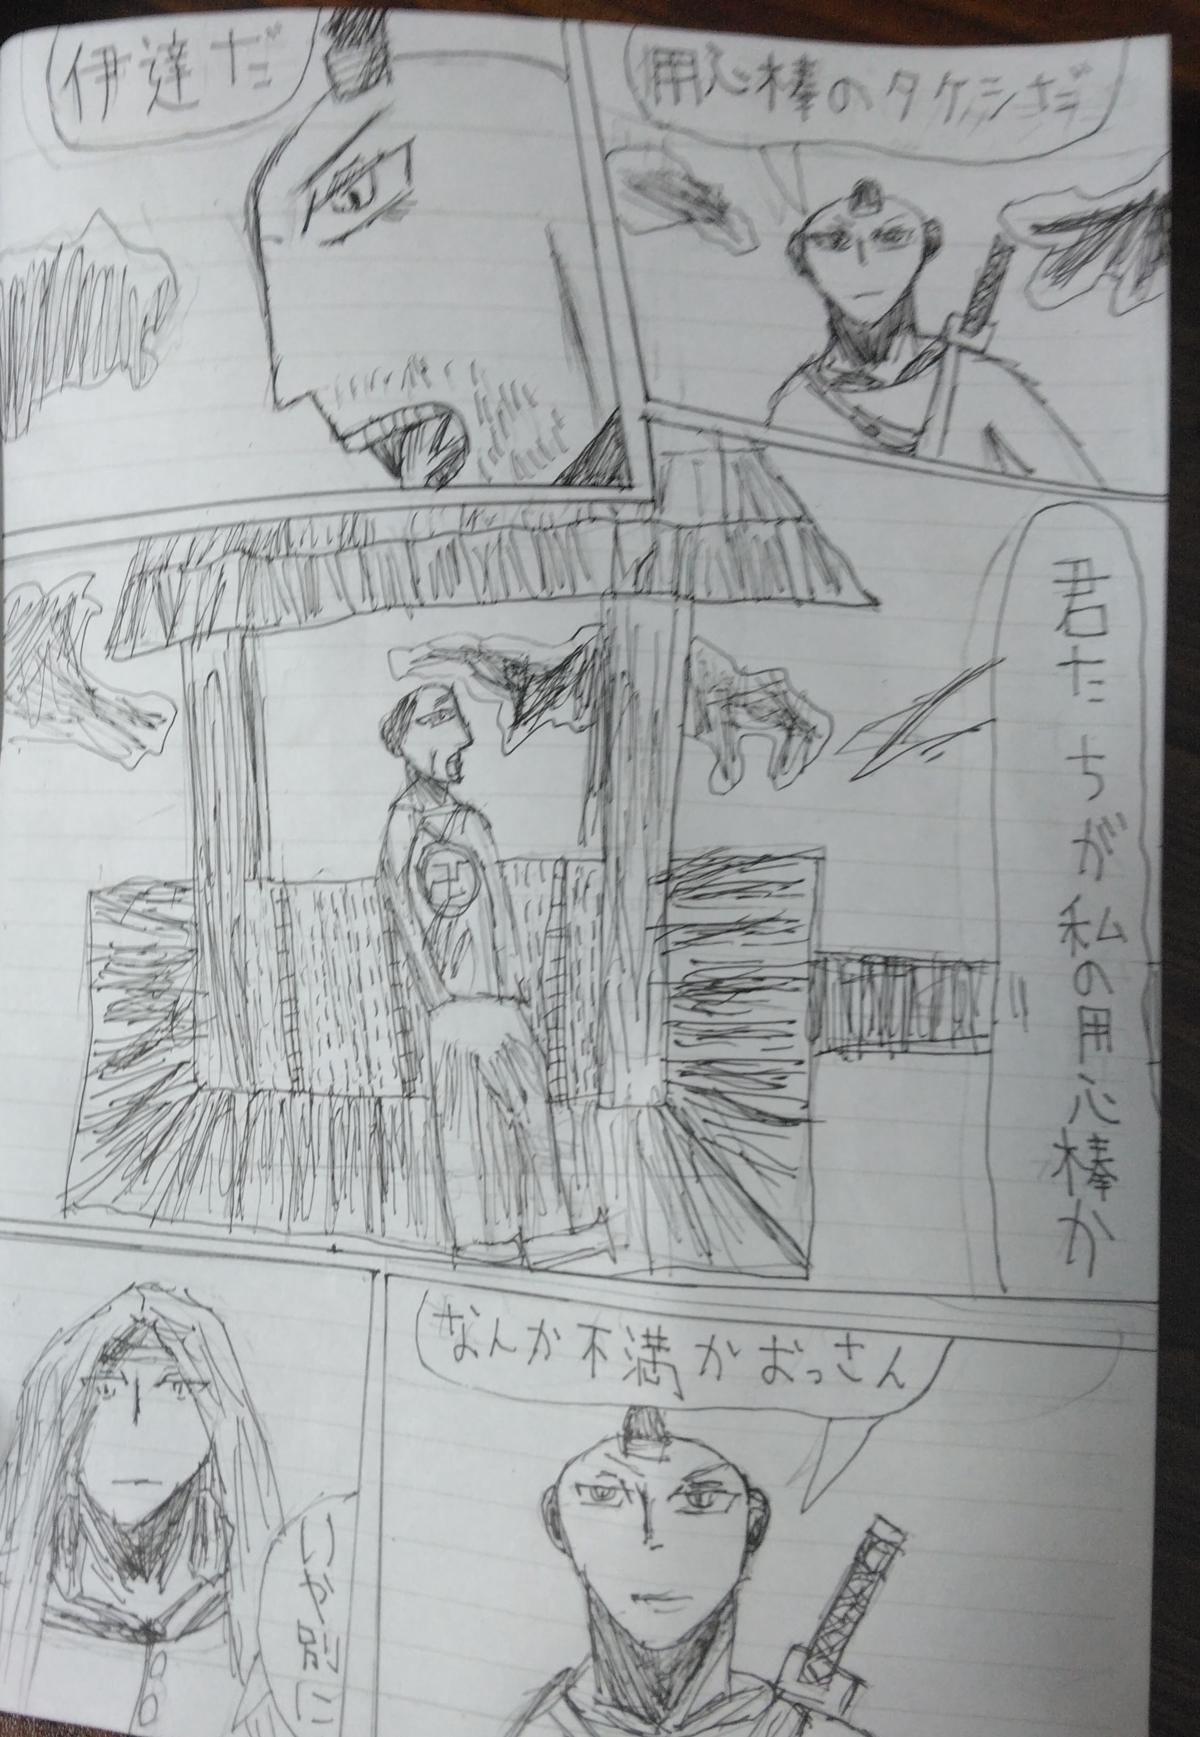 用心棒のタケシだ
伊達だ
君たちが私の用心棒か
なんか不満かおっさん
いや別に